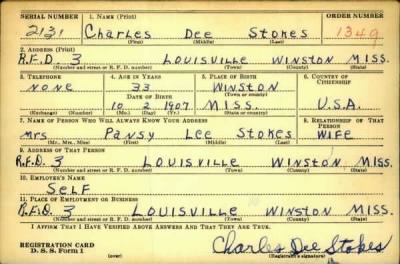 SERIAL NUMBER 1. NAME (Print) ORDER NUMBER
2131 Charles Dee Stokes 1349
(First) (Middle) (Last)
2. ADDRESS (Print)
R.F.D. 3 LOUISVILLE WINSTON MISS.
(Number and street or R. F. D. number) (Town) (County) (State)
3. TELEPHONE 4. AGE IN YEARS 5. PLACE OF BIRTH 6. COUNTRY OF CITIZENSHIP
NONE 33 WINSTON
(Town or county)
DATE OF BIRTH
10 2 1907 MISS. U.S.A.
(Exchange) (Number) (Mo.) (Day) (Yr.) (State or country)
7. NAME OF PERSON WHO WILL ALWAYS KNOW YOUR ADDRESS 8. RELATIONSHIP OF THAT PERSON
Mrs PANSY LEE STOKES WIFE
(Mr., Mrs., Miss) (First) (Middle) (Last)
9. ADDRESS OF THAT PERSON
R.F.D. 3 LOUISVILLE WINSTON MISS.
(Number and street or R. F. D. number) (Town) (County) (State)
10. EMPLOYER'S NAME
SELF
11. PLACE OF EMPLOYMENT OR BUSINESS
R.F.D. 3 LOUISVILLE WINSTON MISS.
(Number and street or R. F. D. number) (Town) (County) (State)
I AFFIRM THAT I HAVE VERIFIED ABOVE ANSWERS AND THAT THEY ARE TRUE.
REGISTRATION CARD
D. S. S. Form 1 (over) Charles Dee Stokes
(Registrant's signature)